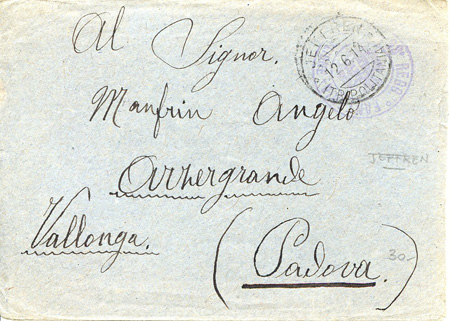 Al Signor.
Manfrin Angelo
Arzergrande
Vallonga.
(Padova.)
JEFFREN
(TRIPOLITANIA)
12.6.14
JEFFREN
30-